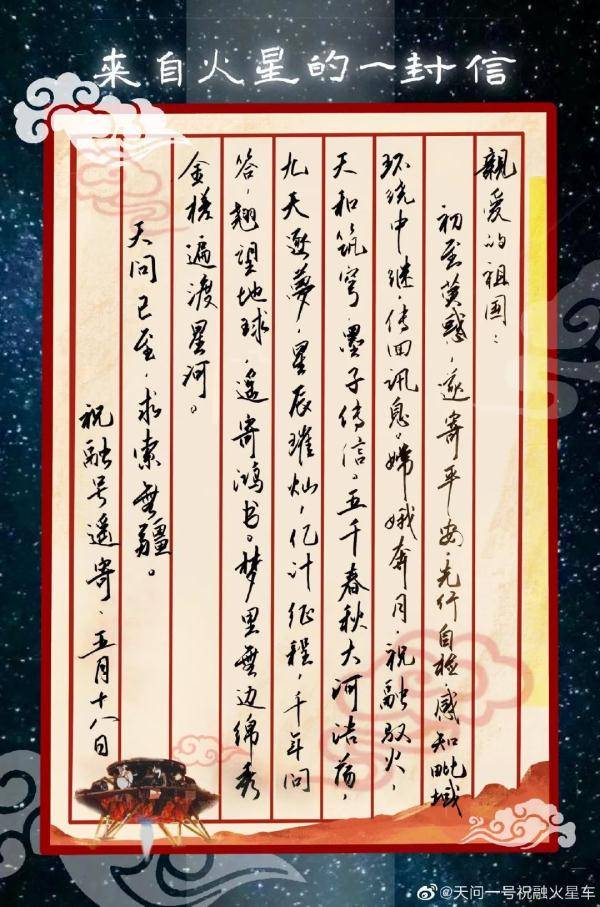 来自火星的一封信
親爱的祖国：
初至荧惑，遥寄平安。先行自检，感知毗域
环绕中继，传回讯息。嫦娥奔月，祝融驭火，
天和筑穹，墨子传信。五千春秋大河浩荡，
九天逐夢，星辰璀灿，亿计征程，千年问
答，翘望地球，遥寄鸿书。梦里無边绵秀
金槎遍渡星河。
天问已至，求索無疆。
祝融号遥寄、五月十八日
@天问一号祝融火星车